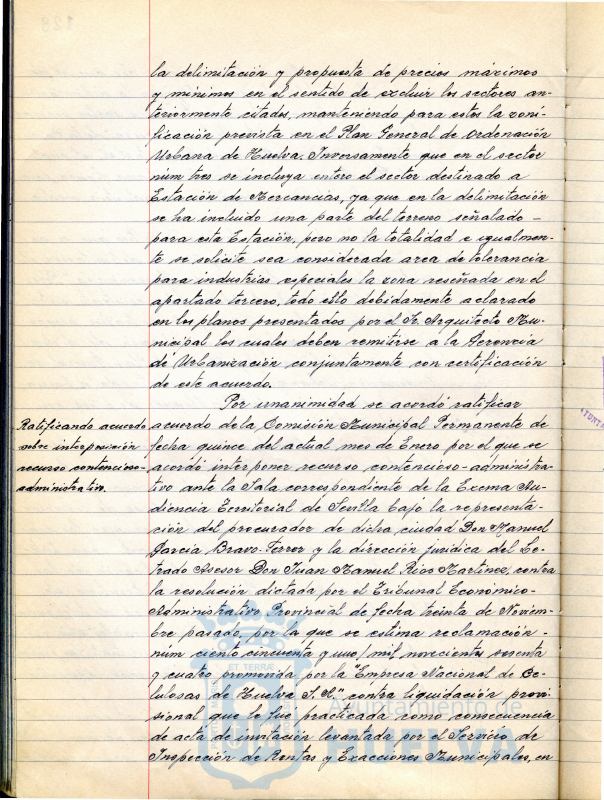 la delimitación y propuesta de precios máximos
y mínimos en el sentido de excluir los sectores an-
teriormente citados, manteniendo para estos la zoni-
ficación prevista en el Plan General de Ordenación
Urbana de Huelva. Inversamente que en el sector
núm tres se incluya entero el sector destinado a
Estación de Mercancías, ya que en la delimitación
se ha incluido una parte del terreno señalado -
para esta Estación, pero no la totalidad e igualmen-
te se solicite sea considerada area de tolerancia
para industrias especiales la zona reseñada en el
apartado tercero, todo ello debidamente aclarado
en los planos presentados por el Sr. Arquitecto Mu-
nicipal los cuales deben remitirse a la Gerencia
de Urbanización conjuntamente con certificación
de este acuerdo.
Por unanimidad se acordó ratificar
Ratificando acuerdo
sobre interposición
recurso contencioso-
administrativo.
acuerdo de la Comisión Municipal Permanente de
fecha quince del actual mes de Enero por el que se
acordó interponer recurso contencioso-administra-
tivo ante la Sala correspondiente de la Excma Au-
diencia Territorial de Sevilla bajo la representa-
ción del procurador de dicha ciudad Don Manuel
García Bravo-Ferrer y la dirección jurídica del Le-
trado Asesor Don Juan Manuel Rios Martinez, contra
la resolución dictada por el Tribunal Económico-
Administrativo Provincial de fecha treinta de Noviem-
bre pasado, por la que se estima reclamación -
núm ciento cincuenta y uno, mil novecientos sesenta
y cuatro promovida por la "Empresa Nacional de Ce-
lulosas de Huelva S.A." contra liquidación provi-
sional que le fue practicada como consecuencia
de acta de invitación levantada por el Servicio de
Inspección de Rentas y Exacciones Municipales, en
Ayuntamiento de
HUELVA